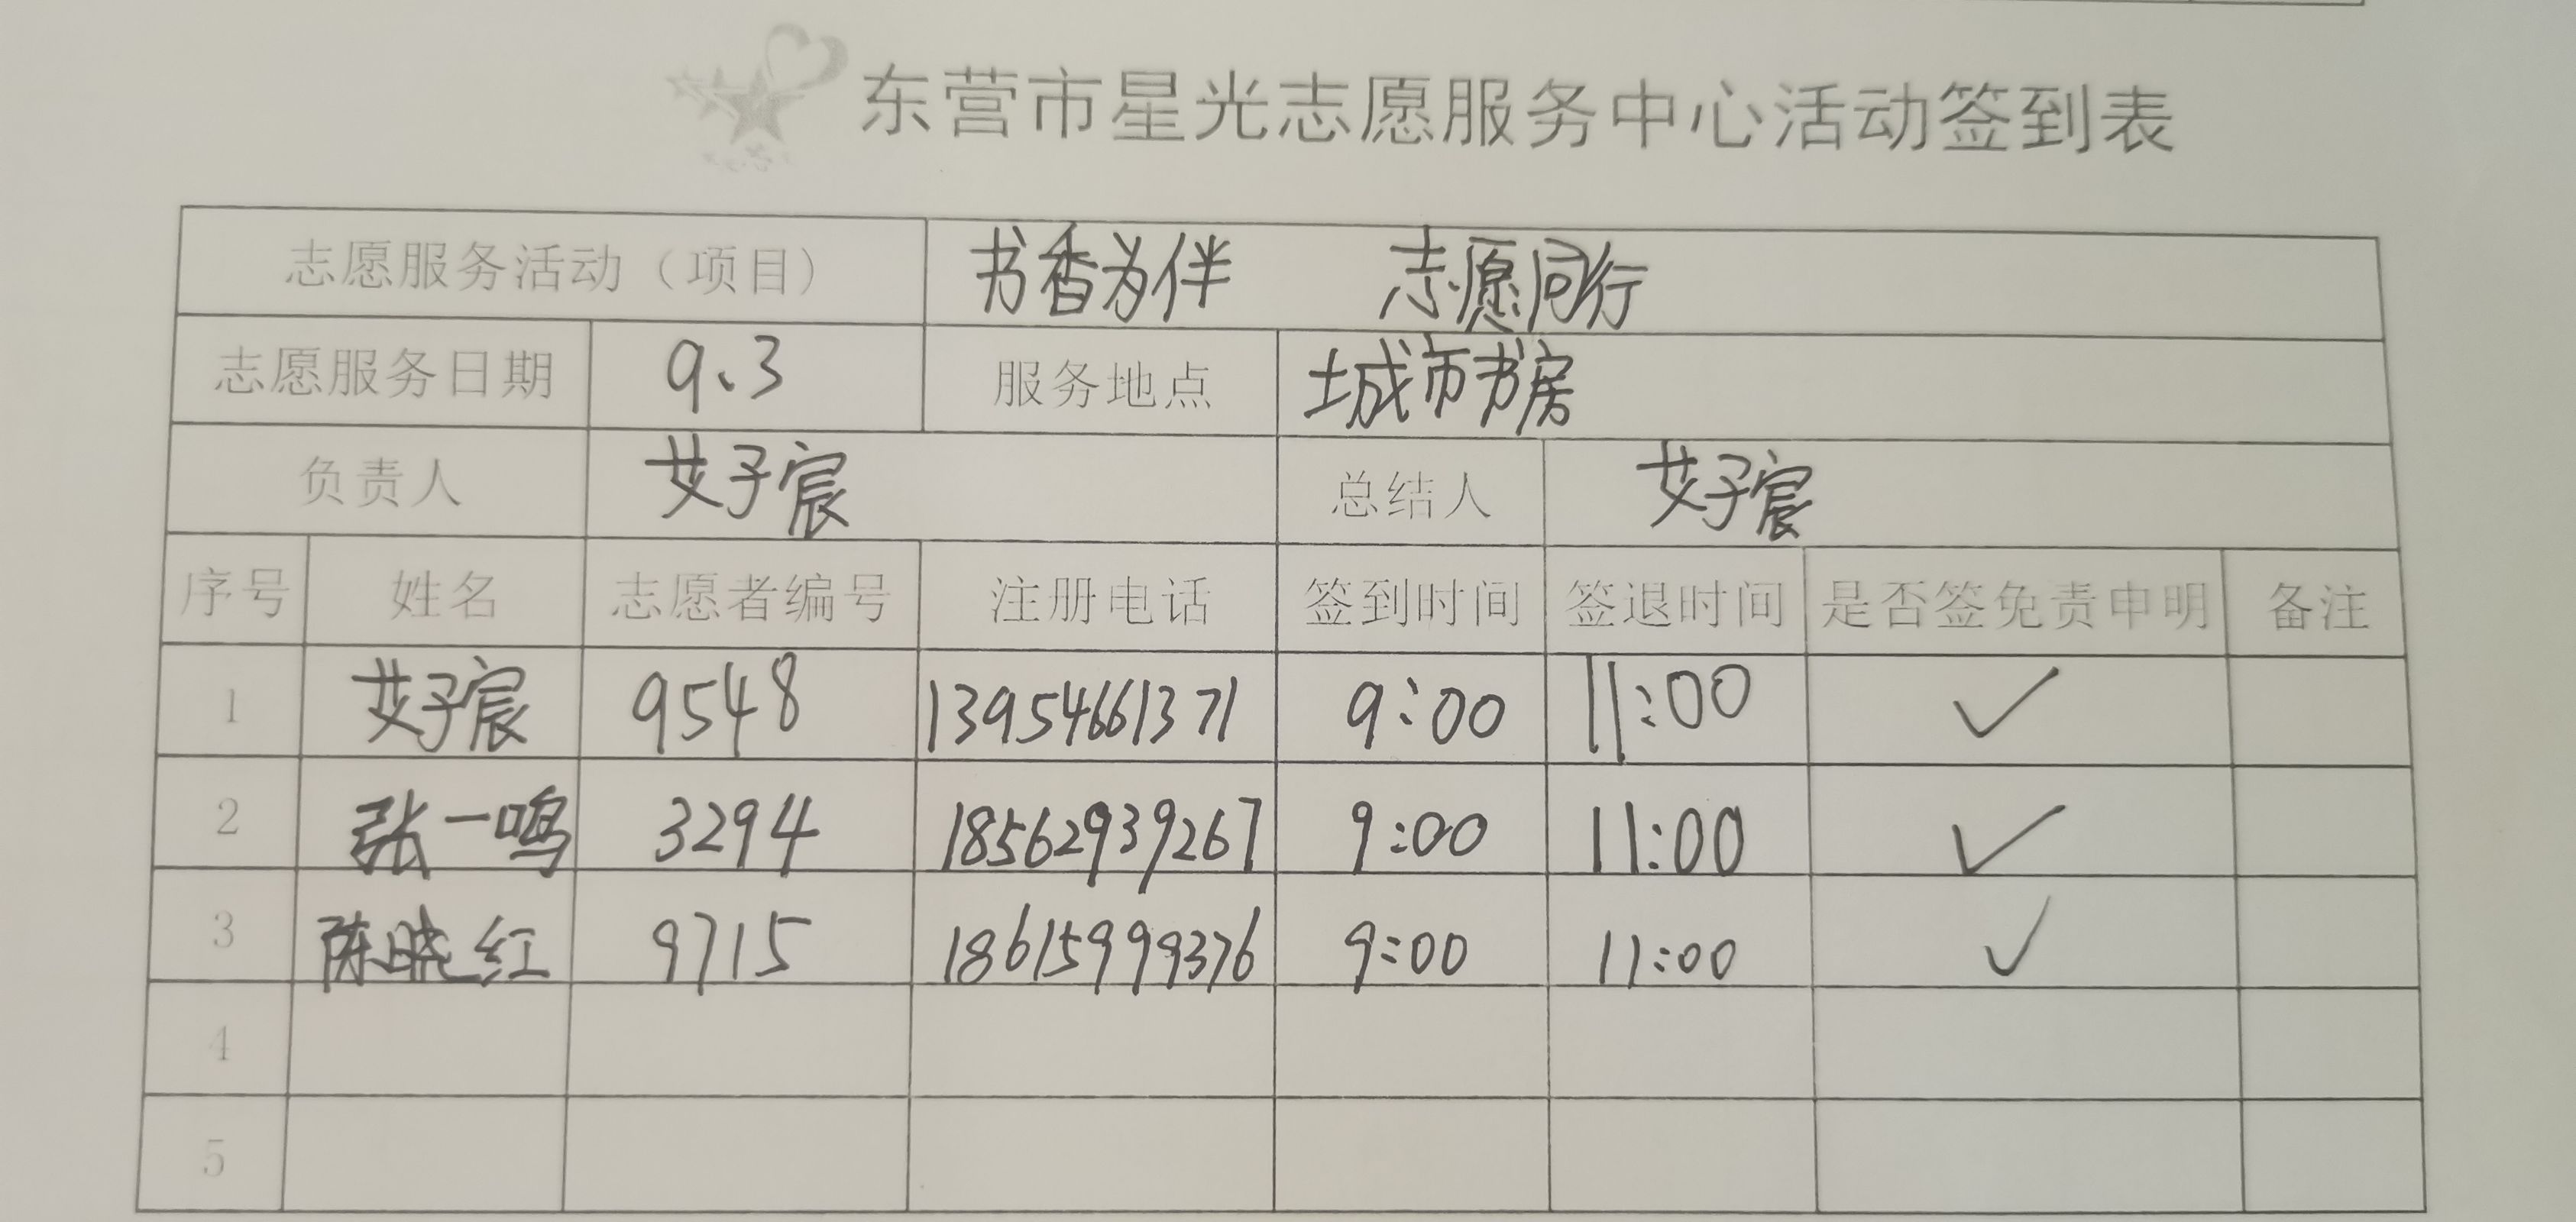 东营市星光志愿服务中心活动签到表
志愿服务活动（项目） 书香为伴 志愿同行
志愿服务日期 9.3 服务地点 城市书房
负责人 艾子宸 总结人 艾子宸
序号 姓名 志愿者编号 注册电话 签到时间 签退时间 是否签免责申明 备注
1 艾子宸 9548 13954661371 9:00 11:00 ✓
2 张一鸣 3294 18562939267 9:00 11:00 ✓
3 陈晓红 9715 18615999376 9:00 11:00 ✓
4
5